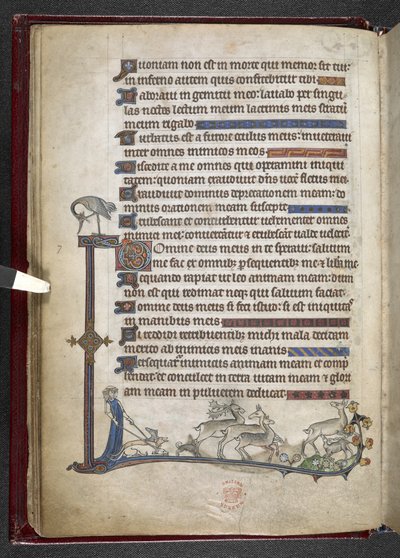 Quoniam non est in morte qui memor sit tui:
in inferno autem quis confitebitur tibi.
Laboraui in gemitu meo: lauabo per singu
las noctes lectum meum lacrimis meis stratū
meum rigabo.
Turbatus est a furore oculus meus: inueteraui
inter omnes inimicos meos.
Discedite a me omnes qui operamini iniqui
tatem: quoniam exaudiuit dñs uocē fletus mei.
Exaudiuit dominus deprecationem meam: do
minus orationem meam suscepit.
Erubescant et conturbentur uehementer omnes
inimici mei: conuertātur et erubescāt ualde uelocit
Domine deus meus in te speraui: saluum
me fac ex omnibꝫ persequentibꝫ me et libera me
Nequando rapiat ut leo animam meam: dum
non est qui redimat neqꝫ qui saluum faciat.
Domine deus meus si feci istud: si est iniquitas
in manibus meis.
Si reddidi retribuentibus michi mala: decidam
merito ab inimicis meis inanis.
Persequatur inimicus animam meam et comp
hendat: et conculcet in terra uitam meam et glori
am meam in puluerem deducat.
7